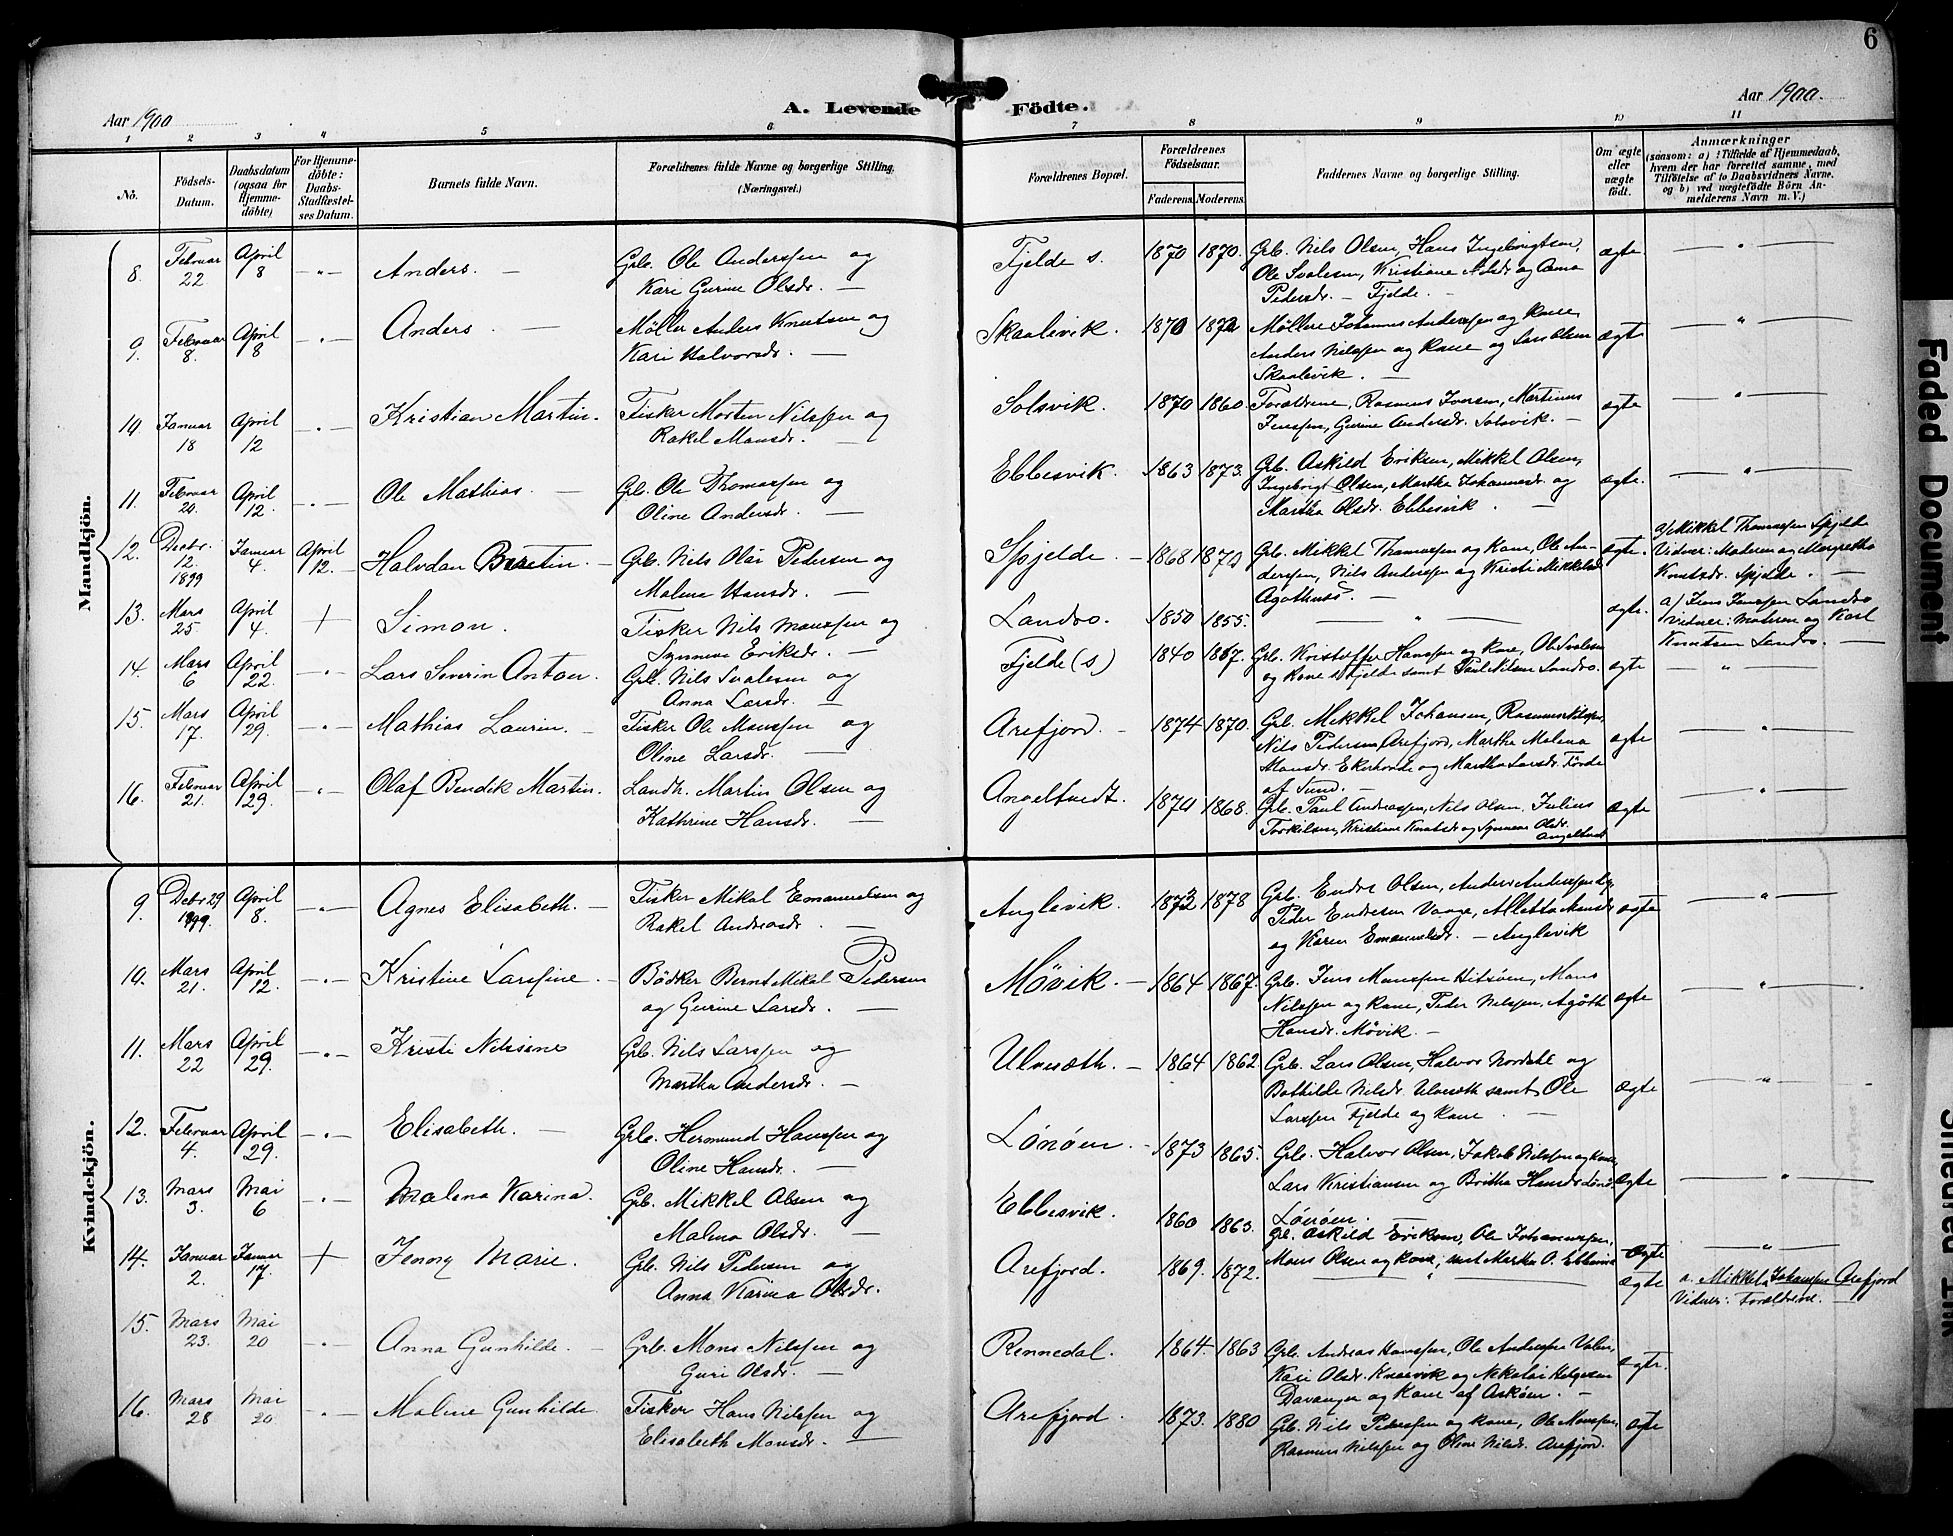 6
Aar 1900
A. Levende Födte.
Aar 1900.
1 2 3 4 5 6 7 8 9 10 11
No.
Födsels-
Datum.
Daabsdatum
(ogsaa for
Hjemme-
döbte)
For Hjemme-
döbte:
Daabs-
Stadfæstel-
ses Datum.
Barnets fulde Navn.
Forældrenes fulde Navne og borgerlige Stilling.
(Næringsvei.)
Forældrenes Bopæl.
Forældrenes
Födselsaar.
Faderens Moderens
Faddernes Navne og borgerlige Stilling.
Om ægte
eller
uægte
födt.
Anmærkninger
(saasom: a) i Tilfælde af Hjemmedaab,
hvem der har forrettet samme, med
Tilföielse af to Daabsvidners Navne.
og b) ved uægtefödte Börn An-
melderens Navn m. V.)
Mandkjön.
8. Februar 22 April 8 Anders. Grb. Ole Anderssen og
Kari Gurine Olsdr. Fjelde s. 1870 1870. Grb. Nils Olsen, Hans Ingebrigtsen,
Ole Svalesen, Kristiane Nilsdr og Anna
Pedersdr. Fjelde. ægte
9. Februar 8. April 8 Anders. Møller Anders Knutsen og
Kari Halvorsdr. Skaalevik. 1870 1872 Møllere Johannes Anderssen og Kone,
Anders Nilssen og Kone og Lars Olsen
Skaalevik. ægte
10 Januar 18 April 12 Kristian Martin. Fisker Morten Nilssen og
Rakel Monsdr. Solsvik. 1870 1860. Forældrene, Rasmus Iversen, Martinus
Jenssen, Gurine Andersdr. Solsvik. ægte
11. Februar 20. April 12. Ole Mathias. Grb. Ole Thomassen og
Oline Andersdr. Ebbesvik. 1863 1873. Grb. Askild Eriksen, Mikkel Olsen,
Ingebrigt Olsen, Martha Johannesdr. og
Martha Olsdr. Ebbesvik. ægte.
12. Decbr. 12. 1899 Januar 4. April 12. Halvdan Berntin. Grb. Nils Olai Pedersen og
Malena Hansdr. Spjelde 1868 1872 Grb. Mikkel Thomassen og Kone, Ole An-
derssen, Nils Anderssen og Kristi Mikkelsdr
Agothnæs. ægte. a/ Mikkel Thomassen Spjelde
Vidner: Moderen og Margretha
Knutsdr. Spjelde.
13. Mars 25. April 4. + Simon. Fisker Nils Monssen og
Synneve Eriksdr. Landro. 1850 1855. ægte. a/ Jens Jenssen Landro
Vidner: Moderen og Karl
Knutsen Landro.
14. Mars 6 April 22. Lars Severin Anton. Grb. Nils Svalesen og
Anna Larsdr. Fjelde (s) 1840 1867. Grb. Kristoffer Hanssen og Kone, Ole Svalesen
og Kone s. Fjelde samt Paul Nilsen Landro. ægte
15. Mars 17. April 29. Mathias Laurin. Fisker Ole Monssen og
Oline Larsdr. Arefjord. 1874 1870. Grb. Mikkel Johansen, Rasmus Nilssen,
Nils Pedersen Arefjord, Martha Malena
Monsdr. Ekerhovde og Martha Larsdr. Førde
af Sund. ægte
16. Februar 21. April 29. Olaf Bendik Martin. Landh. Martin Olsen og
Kathrine Hansdr. Angeltvedt. 1874 1868. Grb. Paul Andreassen, Nils Olsen, Julius
Torkilsen, Kristiane Knutsdr og Synneve Olsdr.
Angeltvedt ægte
Kvindekjön.
9. Decbr 29 1899. April 8. Agnes Elisabeth. Fisker Mikal Emanuelsen og
Rakel Andreasdr. Anglevik. 1873 1878 Grb. Endre Olsen, Anders Anderssen og
Peder Endresen Vaage, Alletta Monsdr
og Karen Emanuelsdr. Anglevik ægte
10. Mars 21. April 12. Kristine Larsine Bödker Bernt Mikal Pedersen
og Gurine Larsdr. Møvik. 1864 1867. Grb. Jens Monssen Hitsöen, Mons
Nilssen og Kone, Peder Nilssen, Agöth
Hansdr. Møvik. ægte
11. Mars 22 April 29. Kristi Nilsine Grb. Nils Larssen og
Martha Andersdr. Ulvesæth. 1864 1862. Grb. Lars Olsen, Halvor Nordal og
Bothilde Nilsdr. Ulvesæth samt Ole
Larssen Fjelde og Kone. ægte
12. Februar 4. April 29. Elisabeth. Grb. Hermund Hanssen og
Oline Hansdr. Lönöen 1873 1865. Grb. Halvor Olsen, Jakob Nilssen og Kone,
Lars Kristiansen og Britha Hansdr.
Lönöen. ægte
13. Mars 3. Mai 6 Malena Karina. Grb. Mikkel Olsen og
Malena Olsdr. Ebbesvik. 1860 1863. Gr. Askild Eriksen, Ole Johannessen,
Mons Olsen og Kone, samt Martha O. Ebbesvik ægte
14. Januar 2. Januar 17. + Jenny Marie. Grb. Nils Pedersen og
Anna Karina Olsdr. Arefjord. 1869. 1872. ægte a. Mikkel Johansen Arefjord
Vidner: Forældrene.
15. Mars 23. Mai 20 Anna Gunhilde. Grb. Mons Nilssen og
Guri Olsdr. Rennedal. 1864. 1863 Grb. Andreas Hanssen, Ole Anderssen Valen,
Kari Olsdr. Knarvik og Nikolai Helgesen
Davanger og Kone af Asköen. ægte.
16. Mars 28 Mai 20. Maline Gunhilde. Fisker Hans Nilssen og
Elisabeth Monsdr. Arefjord. 1873. 1880 Grb. Nils Pederssen og Kone, Ole Monssen,
Rasmus Nilssen og Oline Nilsdr. Arefjord. ægte
Faded Document
Smeared Ink